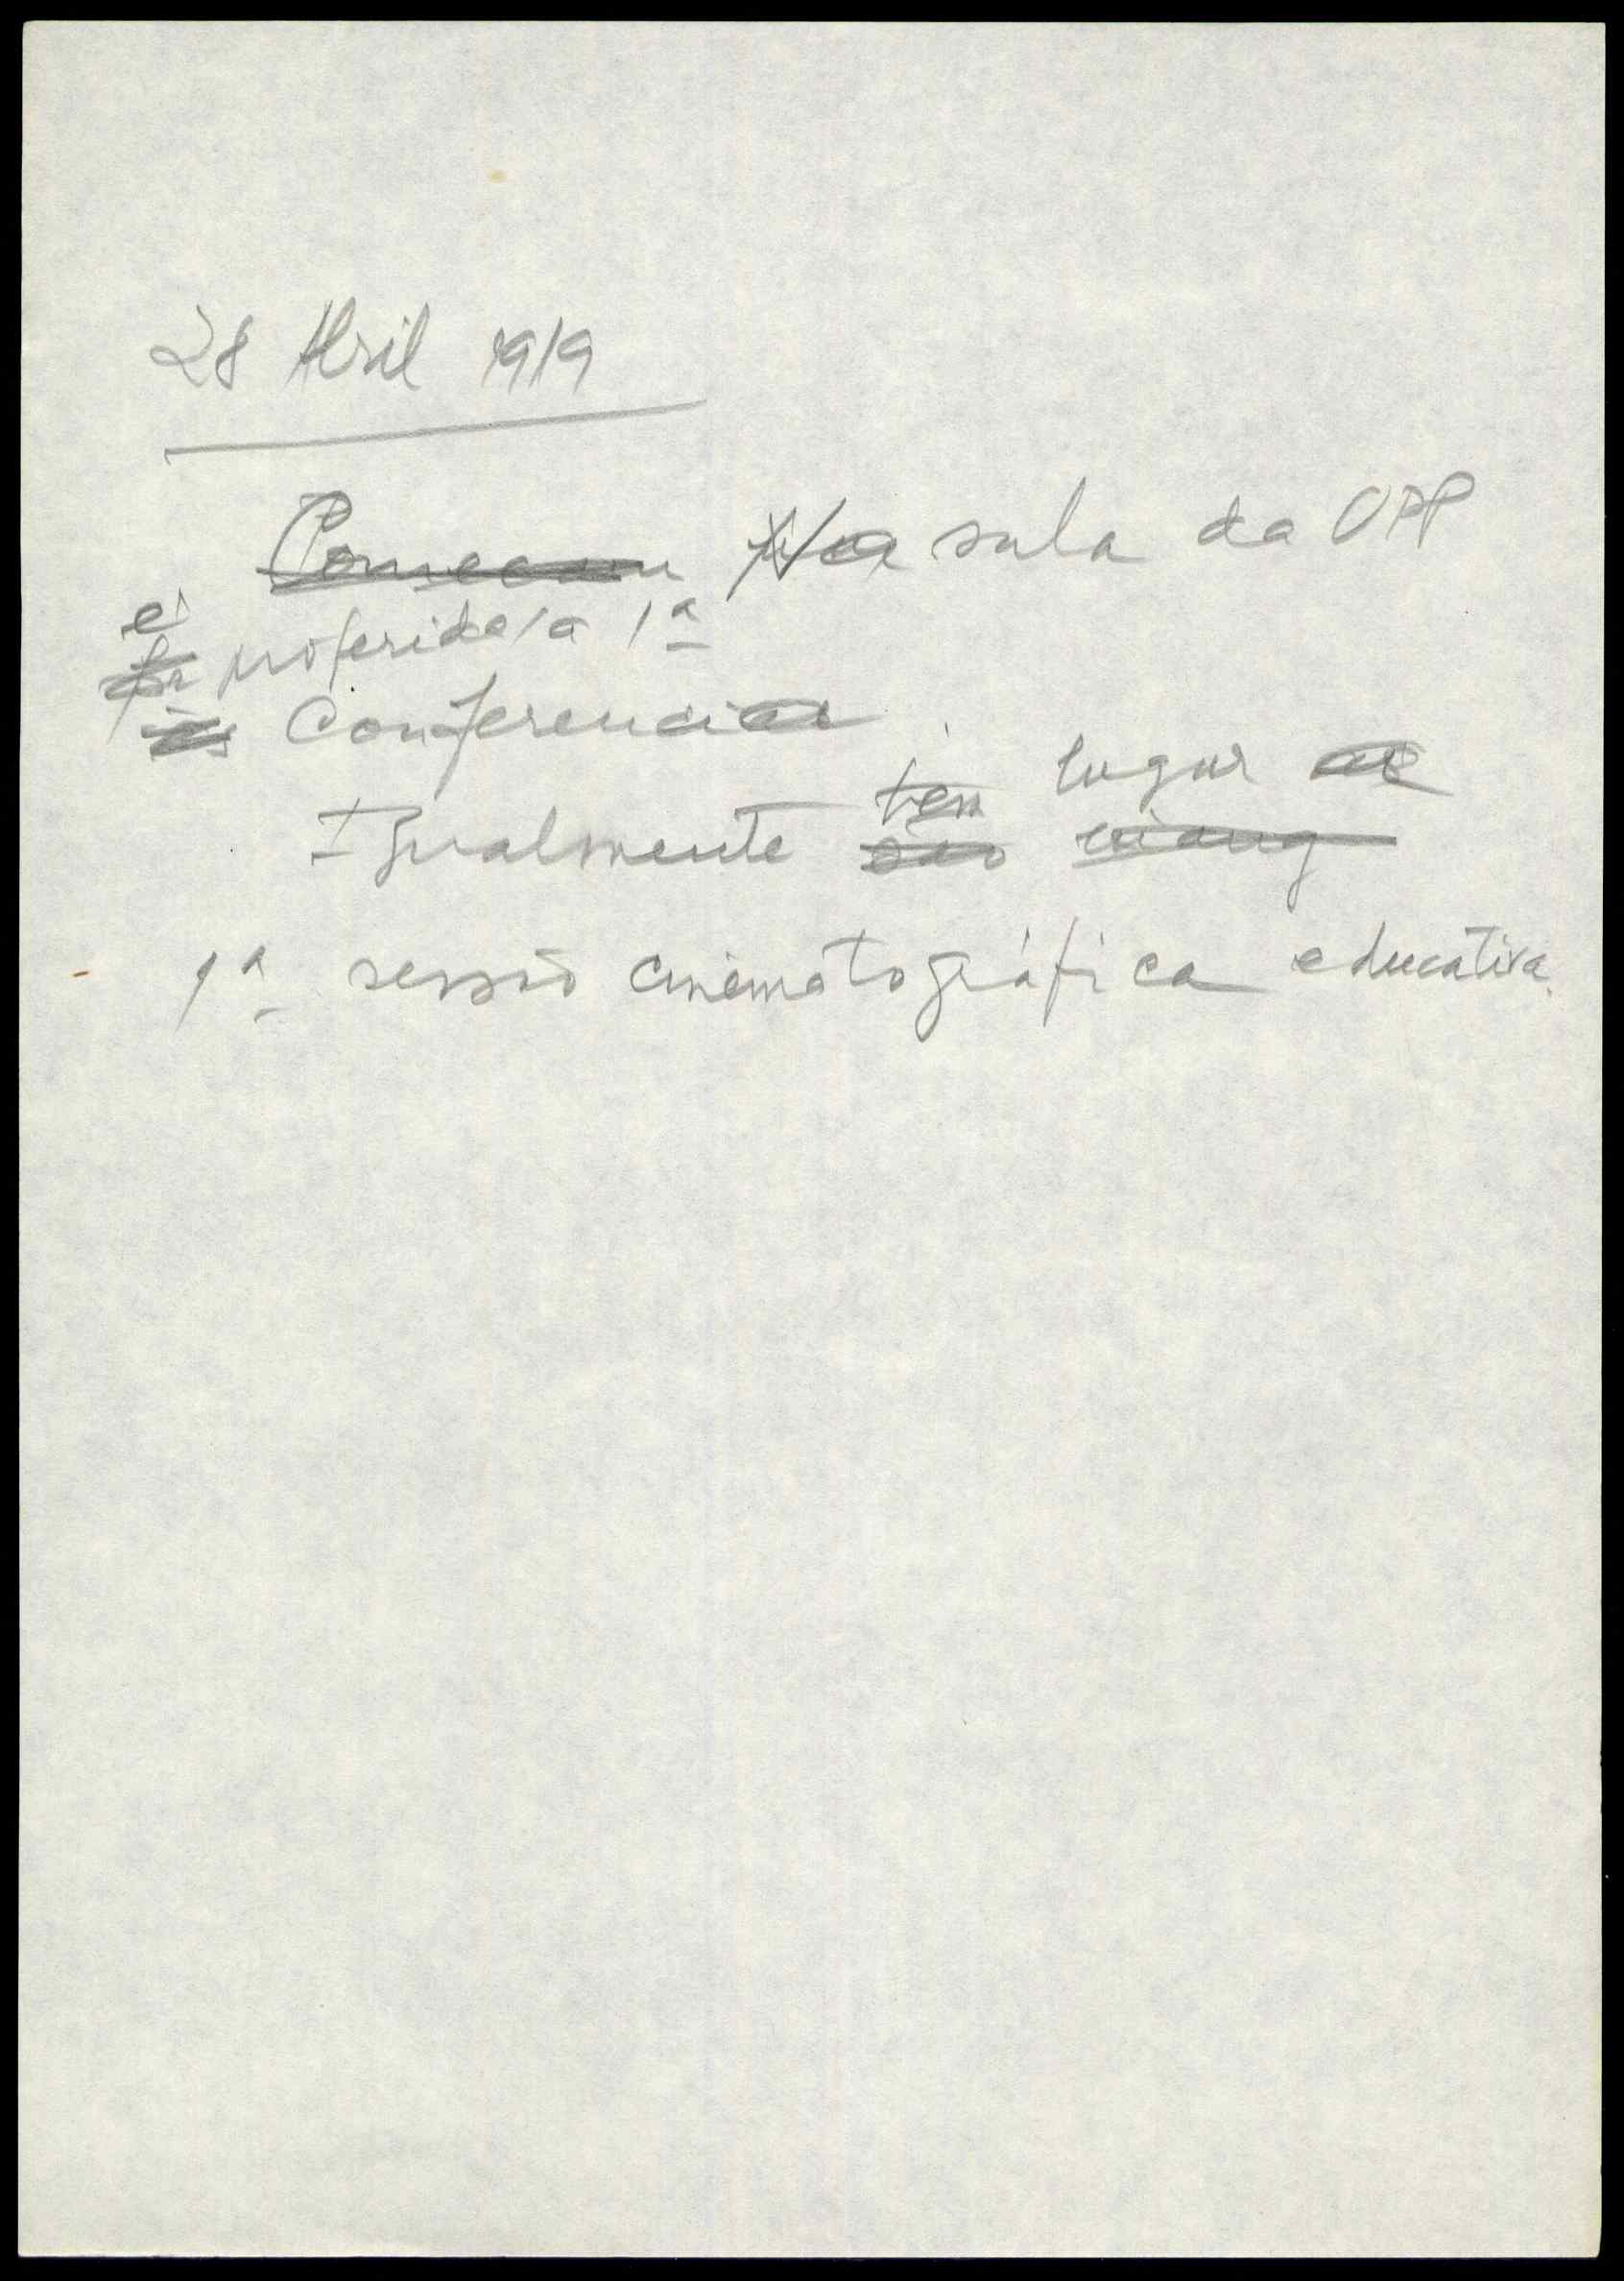 28 Abril 1919
Começam Na sala da UPP
é
proferida a 1ª
Conferencia
tem lugar a
Igualmente são
1ª sessão cinematográfica educativa.